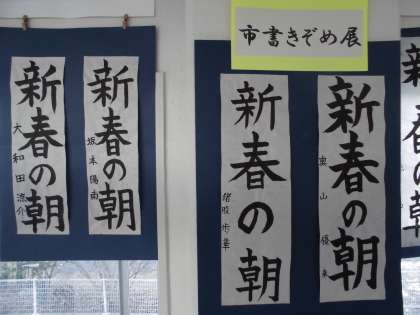 市書きぞめ展
新春の朝
大和田涼介
新春の朝
坂本陽南
新春の朝
新春の朝
奥山優来